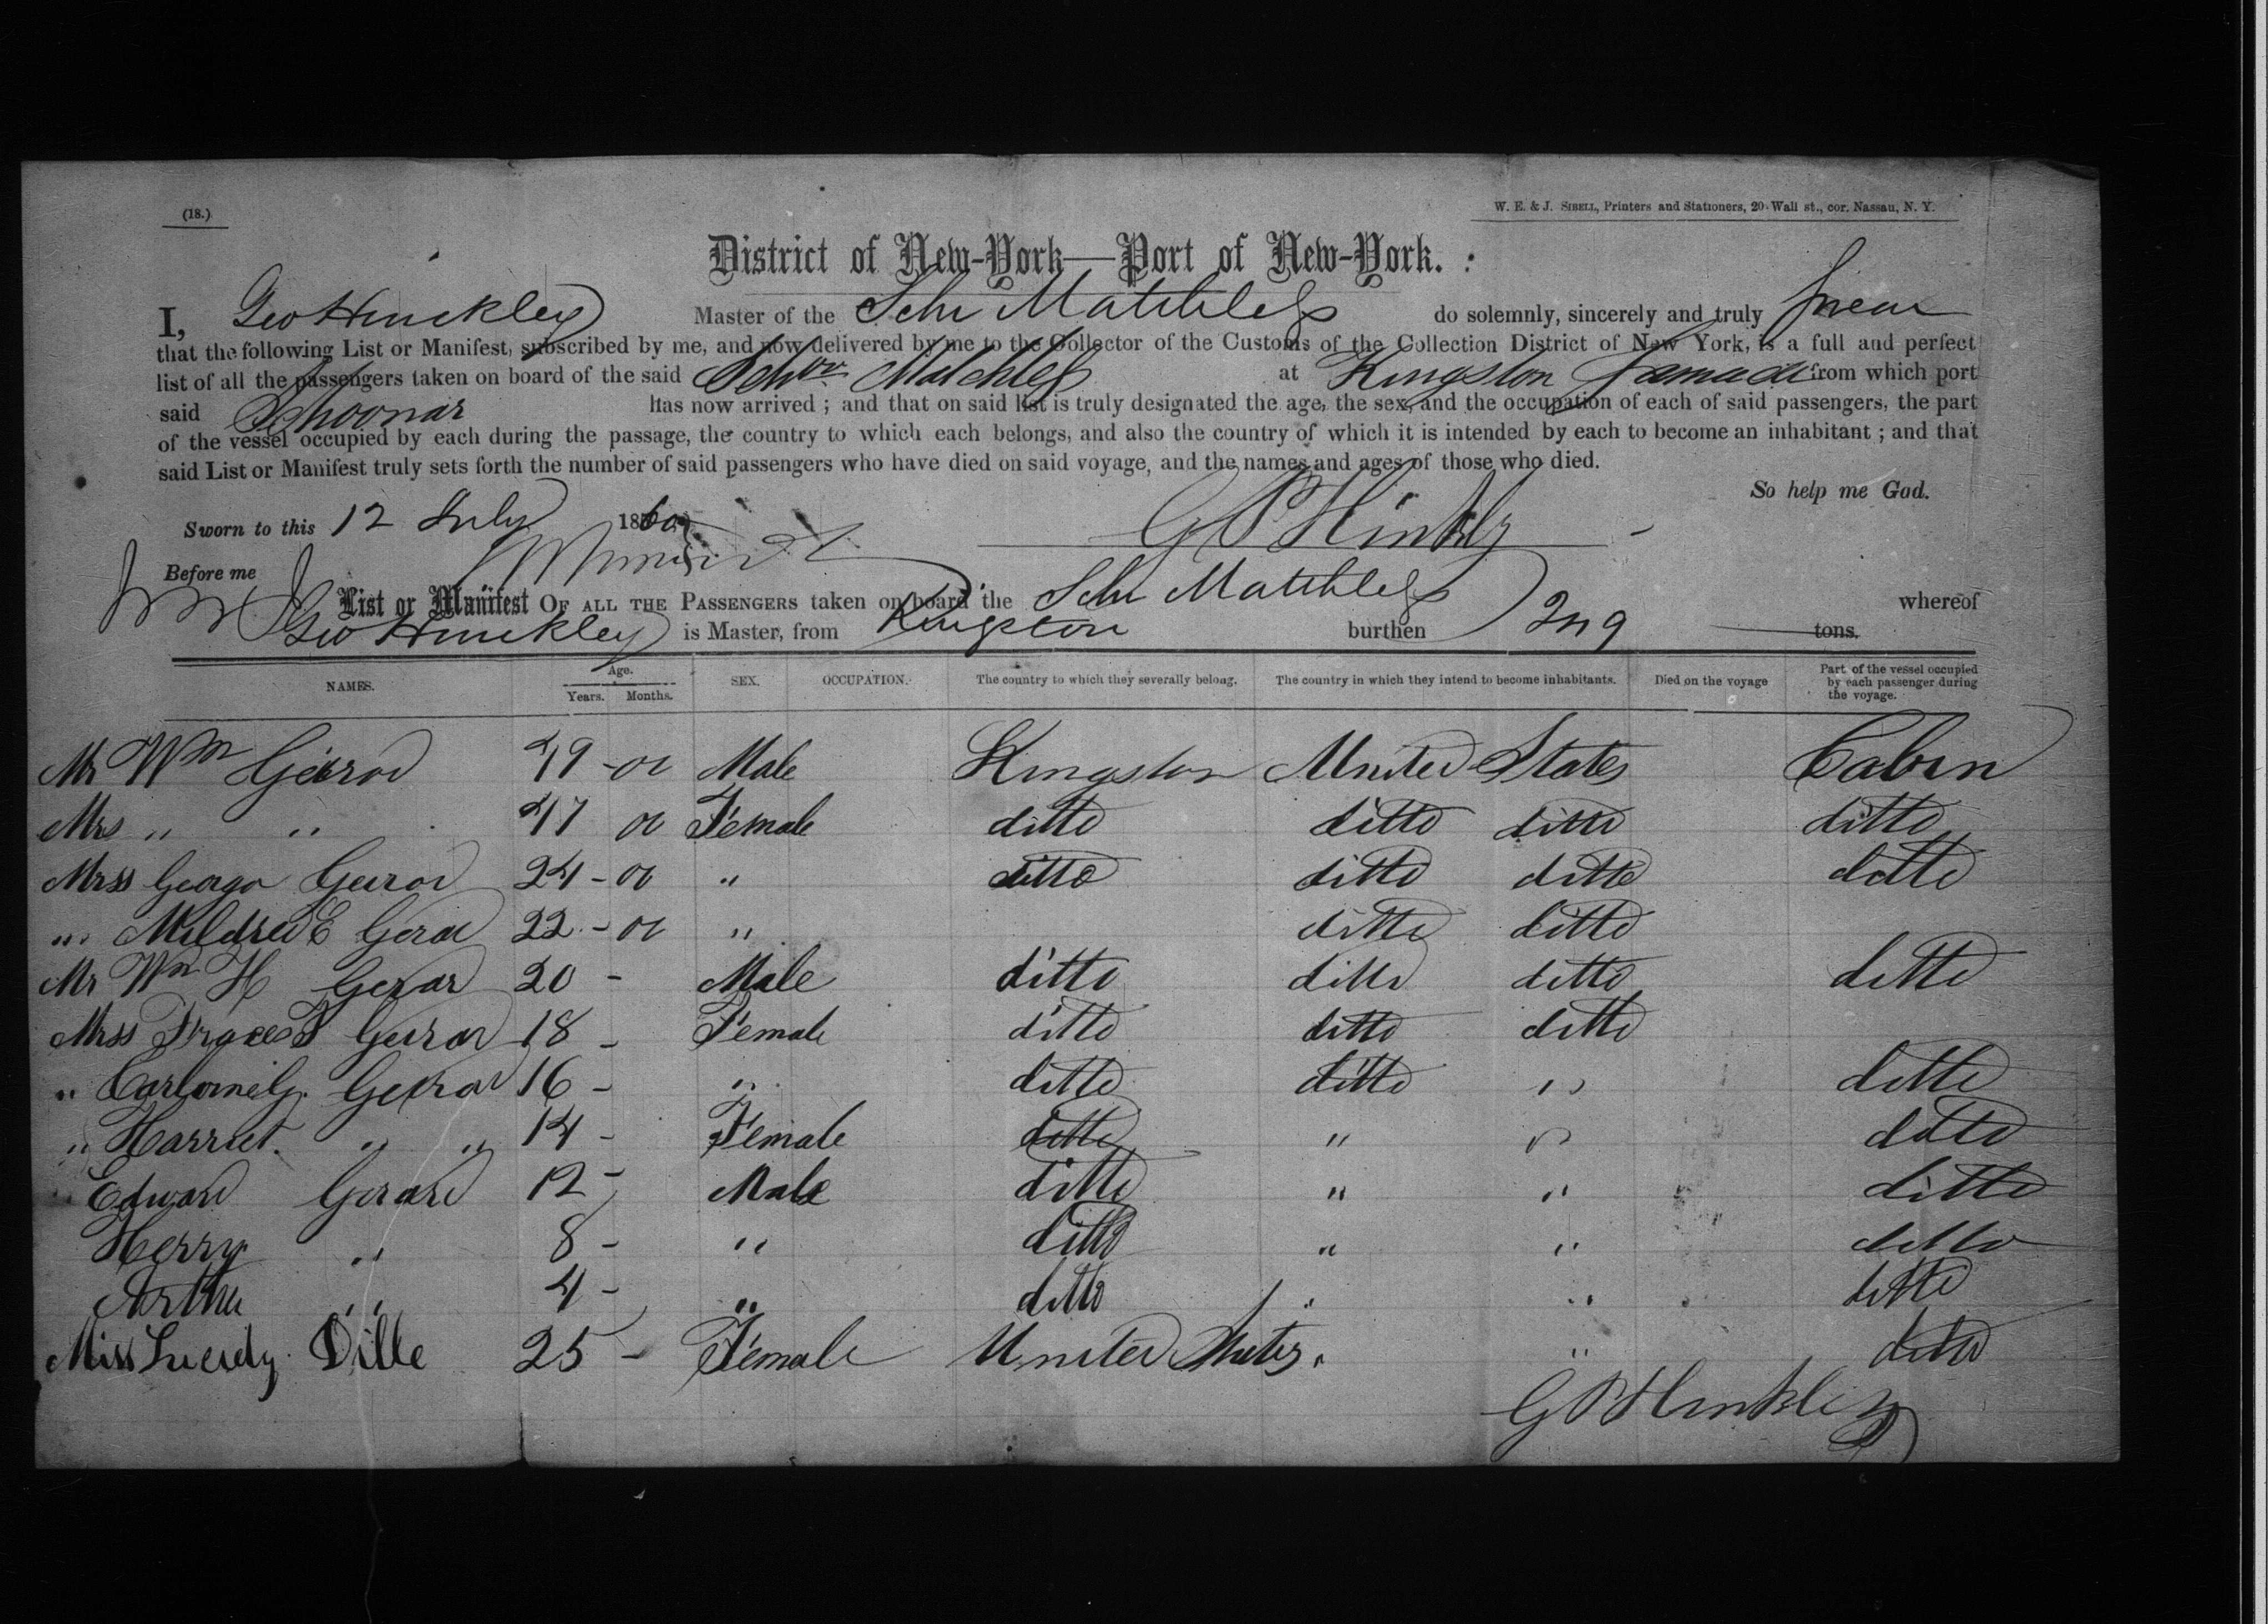 (18.)
W. E. & J. SIBELL, Printers and Stationers, 20 Wall st., cor. Nassau, N. Y.
District of New-York—Port of New-York.
I, Geo Hinckley Master of the Schr Matchless do solemnly, sincerely and truly swear
that the following List or Manifest, subscribed by me, and now delivered by me to the Collector of the Customs of the Collection District of New York, is a full and perfect
list of all the passengers taken on board of the said Schr Matchless at Kingston Jamaica from which port
said Schoonar has now arrived ; and that on said list is truly designated the age, the sex, and the occupation of each of said passengers, the part
of the vessel occupied by each during the passage, the country to which each belongs, and also the country of which it is intended by each to become an inhabitant ; and that
said List or Manifest truly sets forth the number of said passengers who have died on said voyage, and the names and ages of those who died.
So help me God.
Sworn to this 12 July 1860 G P Hinkly
Before me
List or Manifest OF ALL THE PASSENGERS taken on board the Schr Matchless whereof
Geo Hinckley is Master, from Kingston burthen 249 tons.
NAMES. Age. Years. Months. SEX. OCCUPATION. The country to which they severally belong. The country in which they intend to become inhabitants. Died on the voyage Part of the vessel occupied by each passenger during the voyage.
Mr Wm 49 - 00 Male Kingston United States Cabin
Mrs " " 47 00 Female ditto ditto ditto ditto
Mrss George 24 - 00 " ditto ditto ditto ditto
" Mildred E 22 - 00 " ditto ditto
Mr Wm H Gerar 20 - Male ditto ditto ditto ditto
Mrss 18 - Female ditto ditto ditto
" 16 - " ditto ditto " ditto
" Harriet " " 14 - Female ditto " " ditto
Edward Gerard 12 - Male ditto " " ditto
Herry " 8 - " ditto " " ditto
Arthu " 4 - " ditto " " ditto
Miss Dille 25 - Female United States " ditto
G P Hinkley